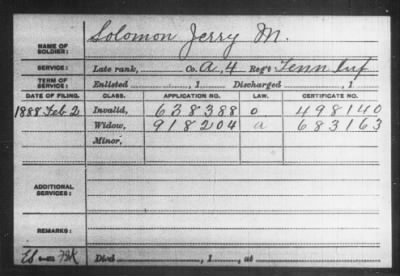 NAME OF SOLDIER: Solomon Jerry M.
SERVICE: Late rank, Co. A, 4 Reg't Tenn Inf
TERM OF SERVICE: Enlisted , 1 Discharged , 1
DATE OF FILING. CLASS. APPLICATION NO. LAW. CERTIFICATE NO.
1888 Feb 2 Invalid, 638388 o 498140
Widow, 918204 a 683163
Minor,
ADDITIONAL SERVICES:
REMARKS:
Died , 1 , at